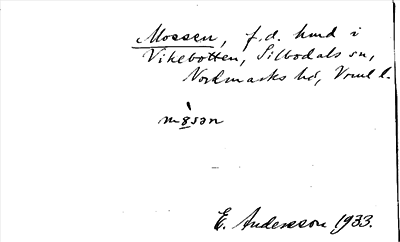 Mossen, f.d. hmd i
Vikebotten, Silbodals sn,
Nordmarks hd, Vrml l.
mòsən
E. Andersson 1933.